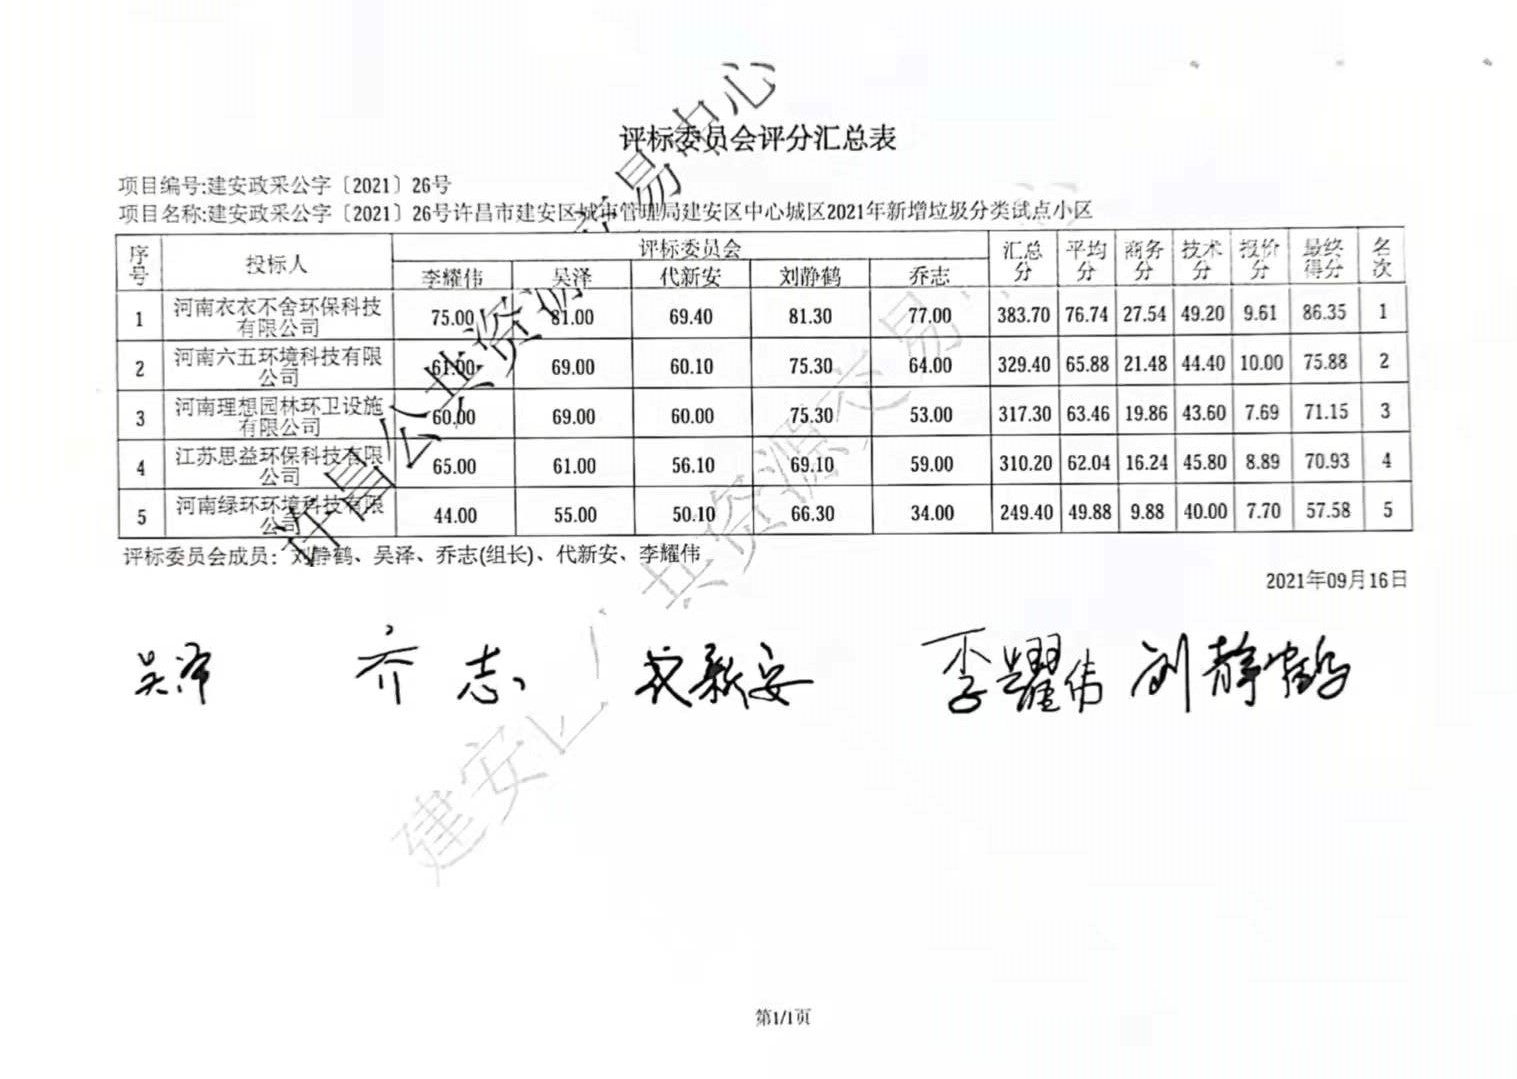 评标委员会评分汇总表
项目编号:建安政采公字〔2021〕26号
项目名称:建安政采公字〔2021〕26号许昌市建安区城市管理局建安区中心城区2021年新增垃圾分类试点小区
序号 投标人 评标委员会 汇总分 平均分 商务分 技术分 报价分 最终得分 名次
李耀伟 吴泽 代新安 刘静鹤 乔志
1 河南衣衣不舍环保科技有限公司 75.00 81.00 69.40 81.30 77.00 383.70 76.74 27.54 49.20 9.61 86.35 1
2 河南六五环境科技有限公司 61.00 69.00 60.10 75.30 64.00 329.40 65.88 21.48 44.40 10.00 75.88 2
3 河南理想园林环卫设施有限公司 60.00 69.00 60.00 75.30 53.00 317.30 63.46 19.86 43.60 7.69 71.15 3
4 江苏思益环保科技有限公司 65.00 61.00 56.10 69.10 59.00 310.20 62.04 16.24 45.80 8.89 70.93 4
5 河南绿环环境科技有限公司 44.00 55.00 50.10 66.30 34.00 249.40 49.88 9.88 40.00 7.70 57.58 5
评标委员会成员：刘静鹤、吴泽、乔志(组长)、代新安、李耀伟
2021年09月16日
吴泽 乔志 代新安 李耀伟 刘静鹤
第1/1页